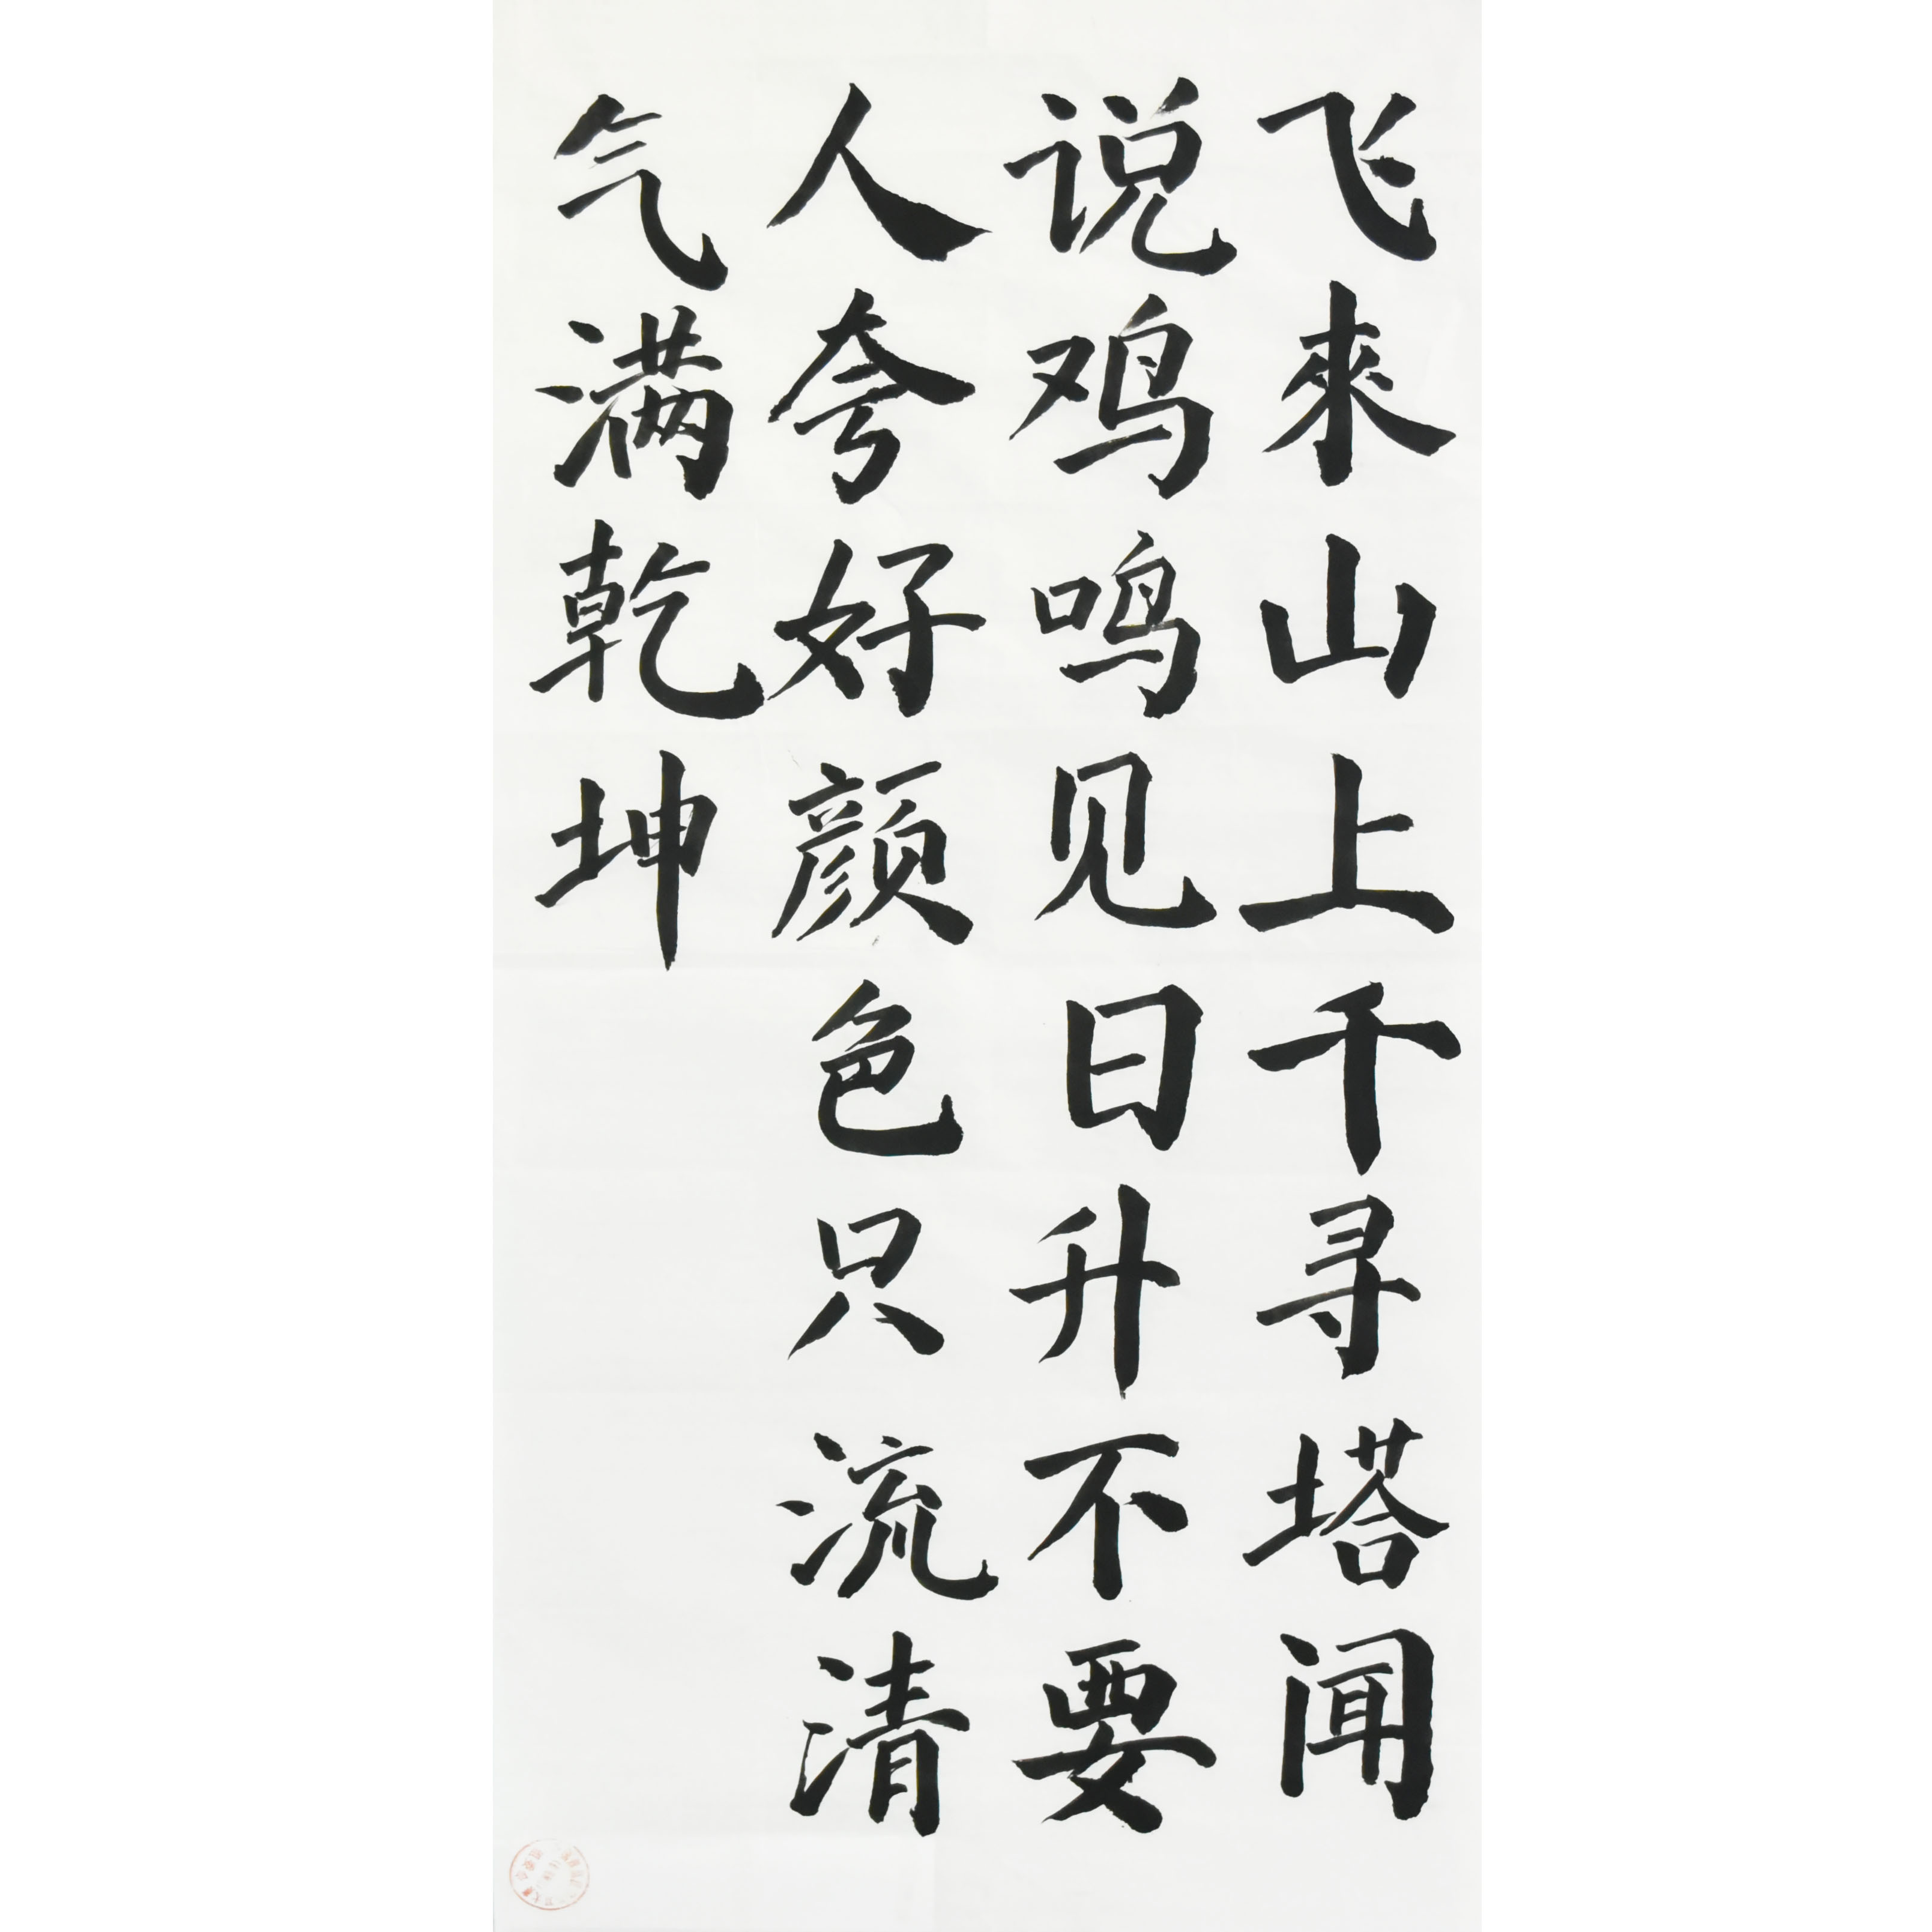 飞來山上千寻塔闻
说鸡鸣见日升不要
人夸好颜色只流清
气满乾坤